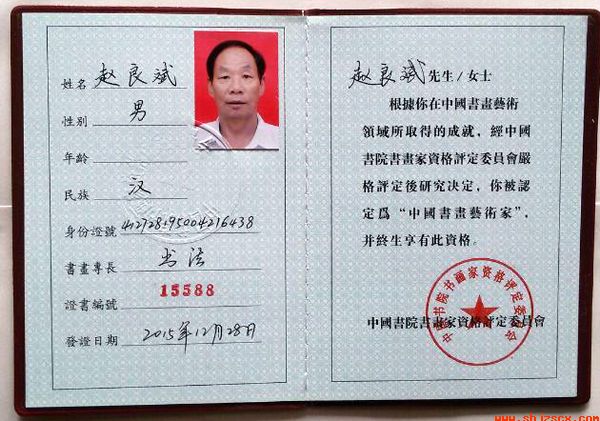 姓名 赵良斌
性别 男
年齡
民族 汉
身份證號 412728195004216438
書畫專長 书法
證書编號 15588
發證日期 2015年12月28日
赵良斌先生/女士
根據你在中國書畫藝術
領域所取得的成就，經中國
書院書畫家資格評定委員會嚴
格評定後研究決定，你被認
定爲“中國書畫藝術家”，
并終生享有此資格。
中國書院書畫家資格評定委員會
中国书院书画家资格评定委员会
www.shjzscx.com